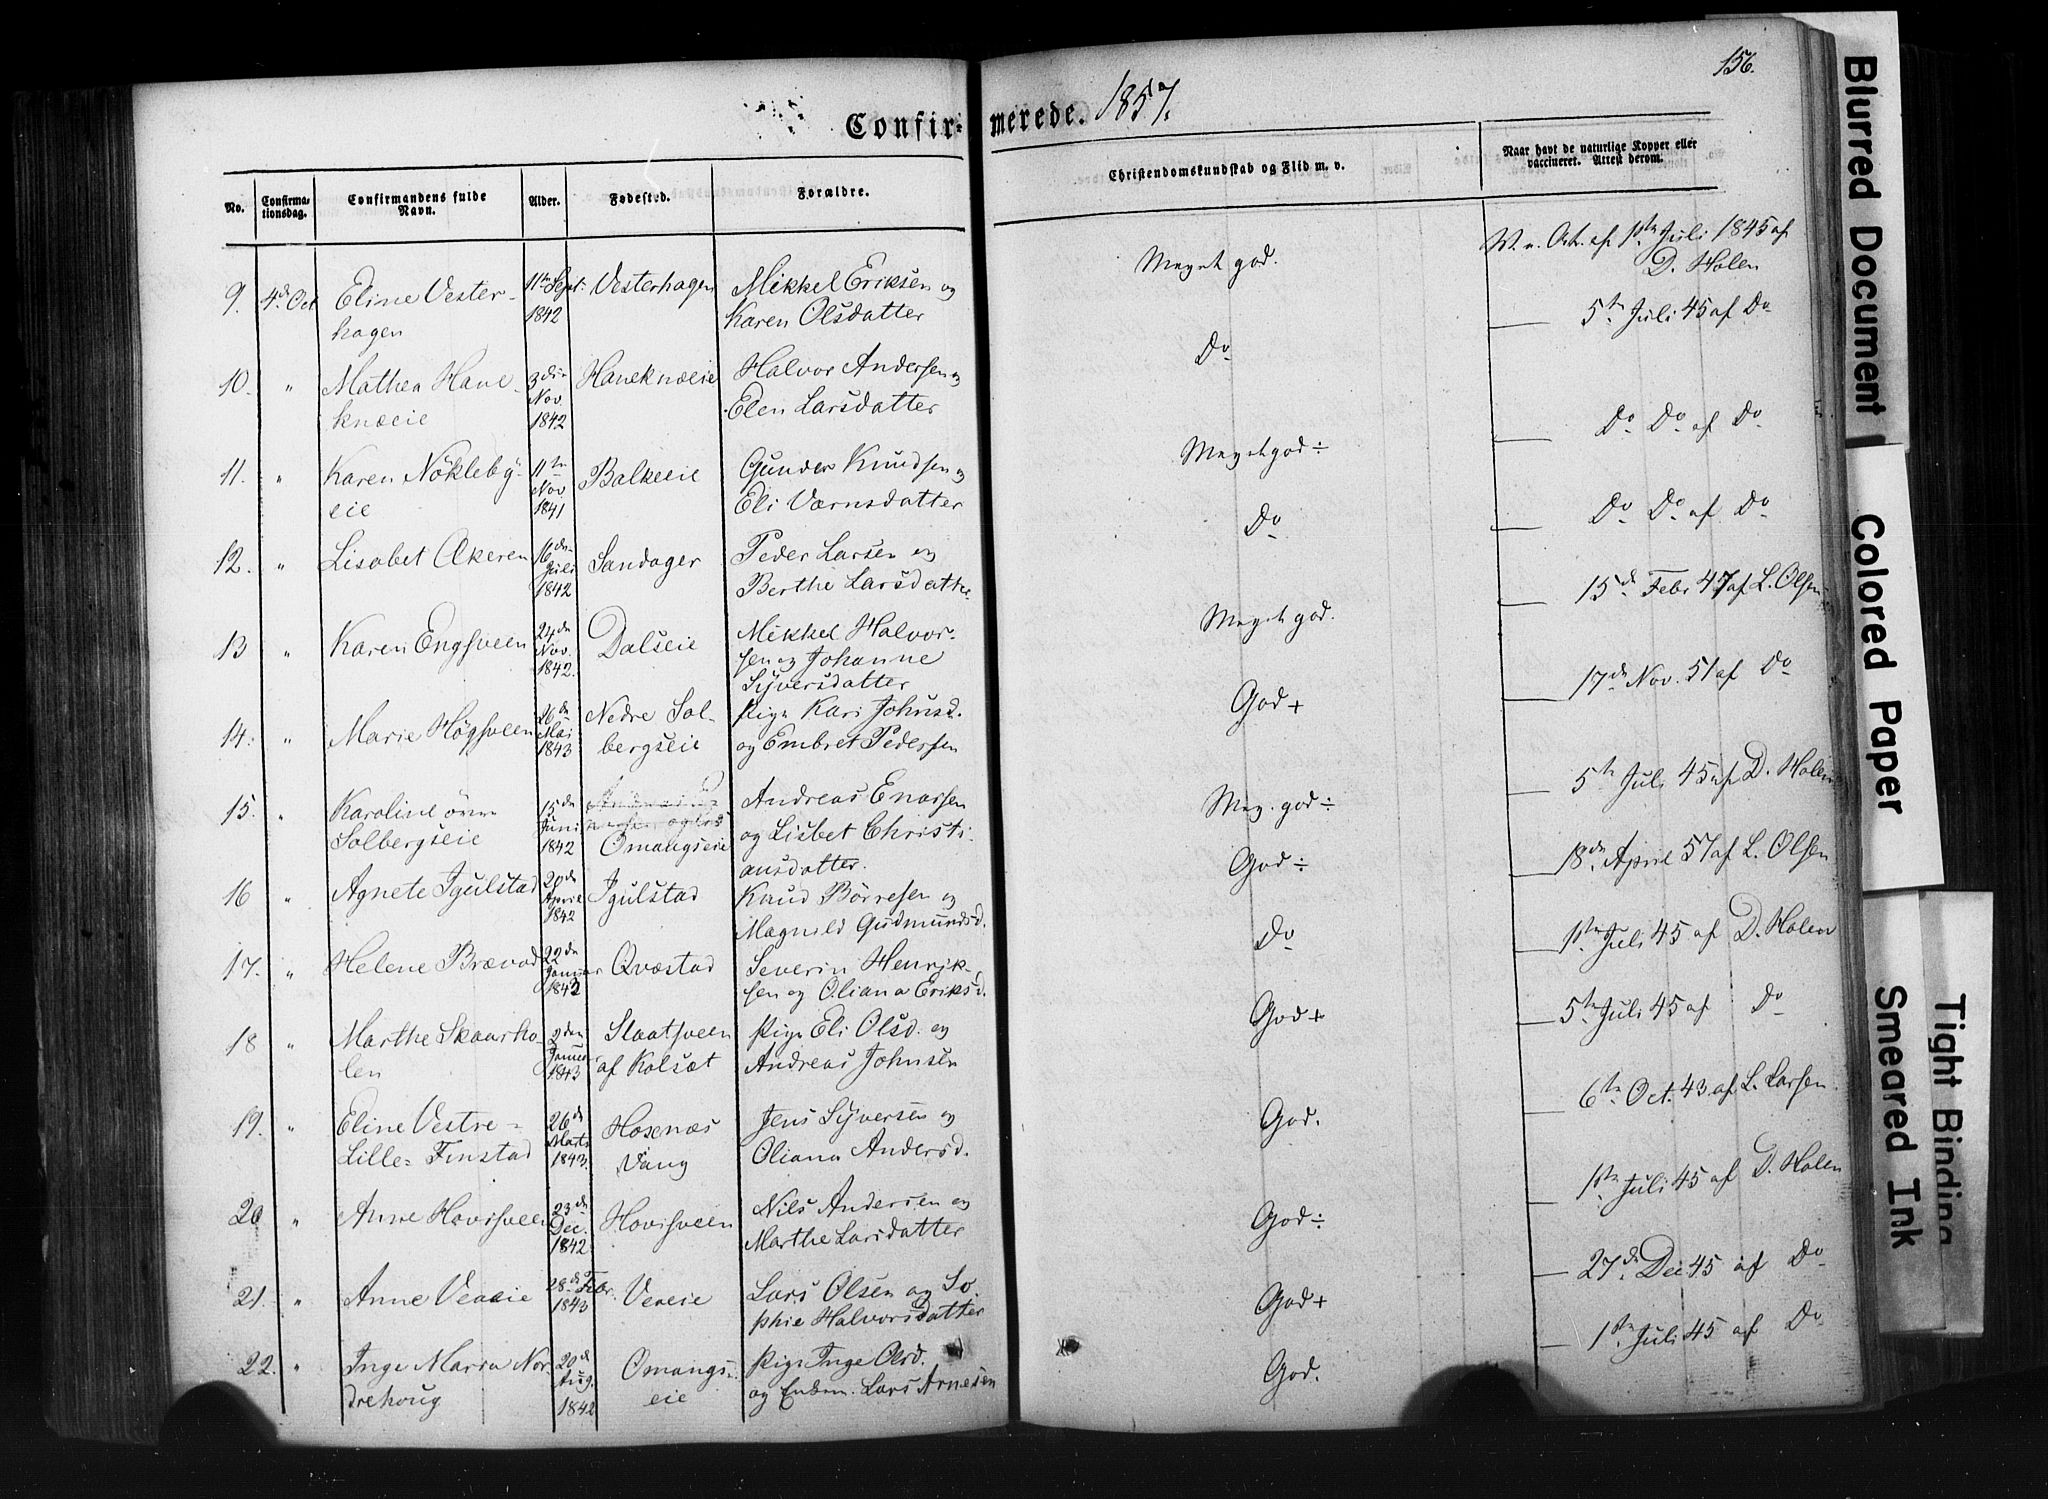 156.
Confir- merede. 1857.
No.
Confirma-
tionsdag.
Confirmandens fulde
Navn.
Alder.
Fødested.
Forældre.
Christendomskundskab og Flid m. v.
Naar havt de naturlige Kopper eller
vaccineret. Attest derom.
9. 4de Oct Eline Vester-
hagen
11te Sept:
1842
Vesterhagen
Mikkel Eriksen og
Karen Olsdatter
Meget god.
1ste Juli 1845 af
D. Holen
10. " Mathea Hane-
knæeie
3die
Nov.
1842
Haneknæeie
Halvor Andersen og
Elen Larsdatter
Do
5te Juli 45 af Do
11. " Karen Nökleby-
eie
11te
Nov.
1841
Balkeeie
Gunder Knudsen og
Eli Værnsdatter
Meget god ÷
Do Do af Do
12. " Lisabet Akeren
16de
Juli
1842
Sandager
Peder Larsen og
Berthe Larsdatter
Do
Do Do af Do
13 " Karen Engsveen
24de
Nov.
1842.
Dalseie
Mikkel Halvor-
sen og Johanne
Syversdatter
Meget god.
15de Febr 47 af L. Olsen
14. " Marie Høgsveen
26de
Mai
1843
Nedre Sol-
bergseie
Pige Kari Johnsd.
og Embret Pedersen
God +
17de Nov. 51 af Do
15. " Karoline övre
Solbergseie
15de
Juni
1842
Omangseie
Andreas Enersen
og Lisbet Christi-
ansdatter.
Meg. god ÷
5te Juli 45 af D. Holen
16 " Agnete Igulstad
20de
April
1842
Igulstad
Knud Börresen og
Magnild Gudmundsd.
God ÷
18de April 57 af L. Olsen
17. " Helene Brævad
22de
Januar
1842
Qvæstad
Severin Henrik-
sen og Oliana Eriksd.
Do
1ste Juli 45 af D. Holen
18 " Marthe Skaarho-
len
2den
Januar
1843
Slaatsveen
af Kolsæt
Pige Eli Olsd. og
Andreas Johnsen
God +
5te Juli 45 af Do
19. " Eline Vestre-
Lille-Finstad
26de
Marts
1843.
Hosenæs
Vang
Jens Syversen og
Oliana Andersd.
God.
6te Oct. 43 af L. Larsen.
20 " Anne Hovisveen
23de
Dec.
1842
Hovisveen
Nils Andersen og
Marthe Larsdatter
God ÷
1ste Juli 45 af D. Holen
21. " Anne Veneie
28de Febr.
1843
Veneie
Lars Olsen og So-
phie Halvorsdatter
God +
27de Dec 45 af Do
22. " Inge Maria Nor-
drehoug
20de
Aug.
1842
Omangs-
eie
Pige Inge Olsd.
og Enkem. Lars Arnesen
God.
1ste Juli 45 af Do
Blurred Document
Colored Paper
Tight Binding
Smeared Ink